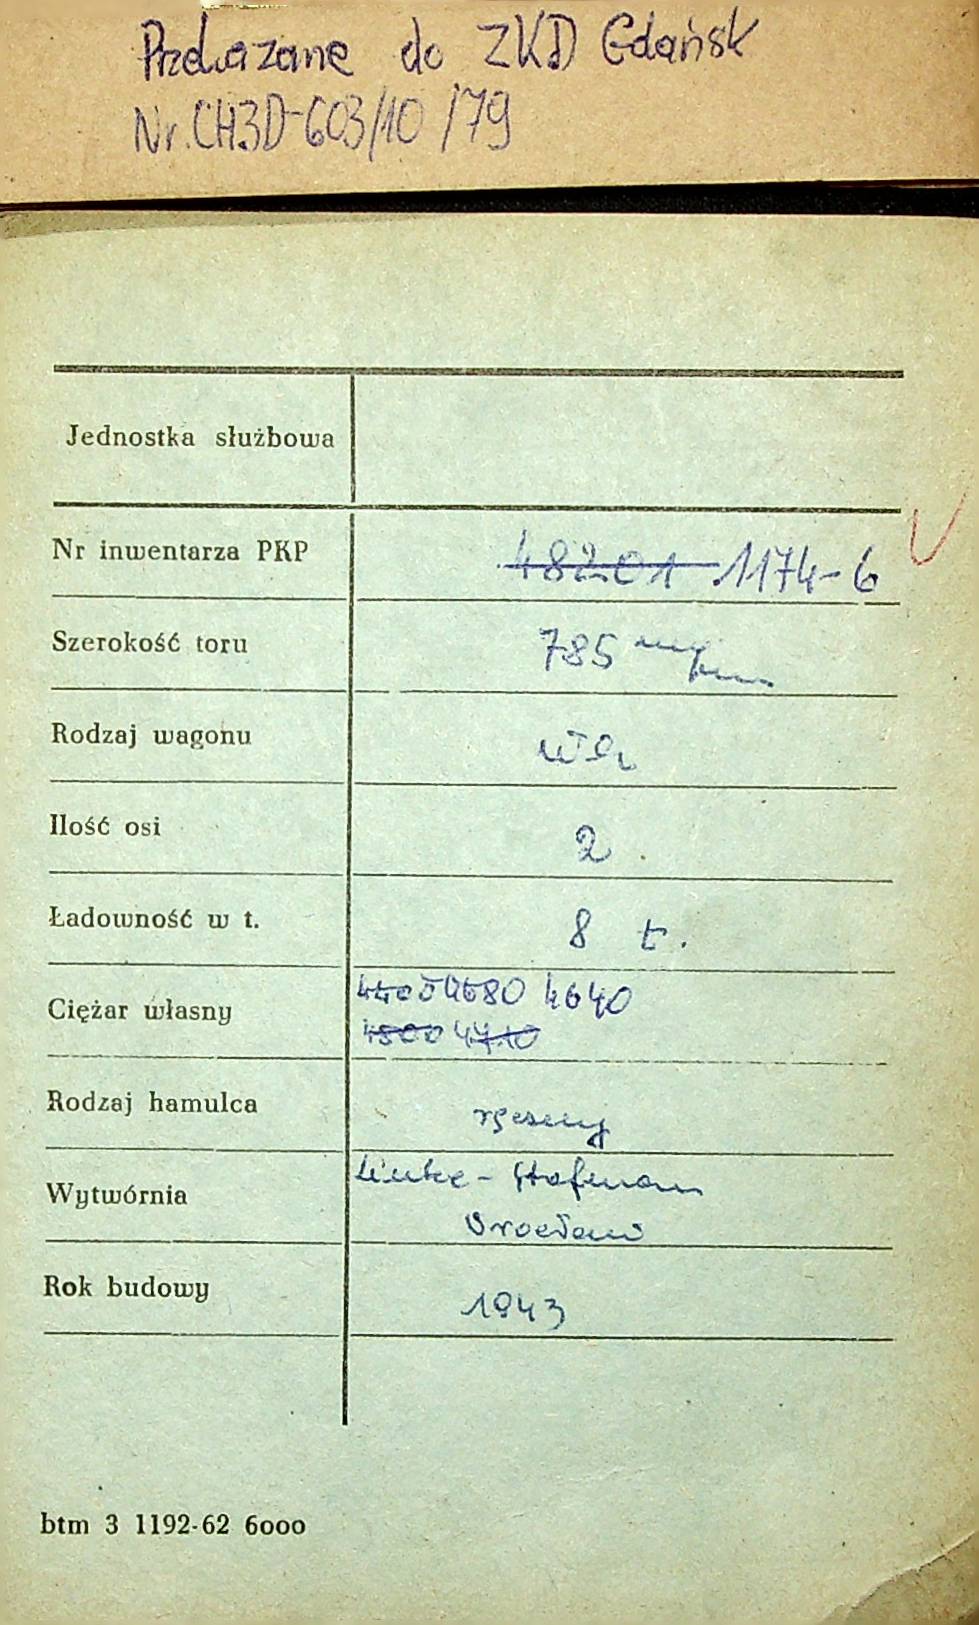 Przekazane do ZKD Gdańsk
Nr. CH3D-603/10/79
Jednostka służbowa
Nr inwentarza PKP 48201 1174-6
Szerokość toru 785
Rodzaj wagonu
Ilość osi 2
Ładowność w t. 8 t.
Ciężar własny 4680 4640
4800 4710
Rodzaj hamulca ręczny
Wytwórnia Linke-Hofmann
Wrocław
Rok budowy 1943
btm 3 1192-62 6000